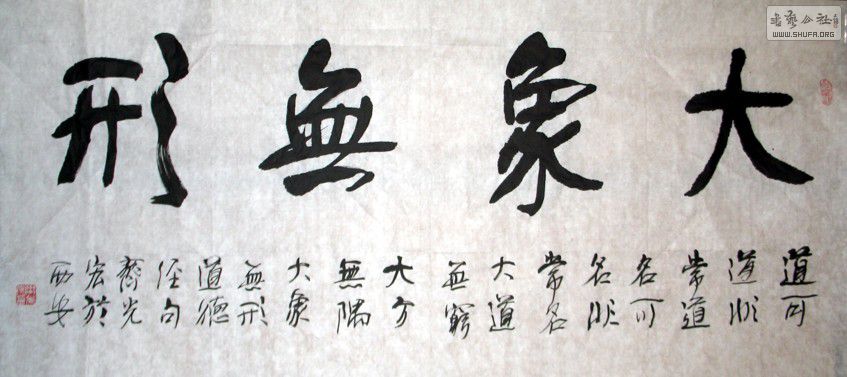 大象無形
道可
道非
常道
名可
名非
常名
大道
無窮
大方
無隅
大象
無形
道德
經句
齊光
宏於
西安
書藝公社
WWW.SHUFA.ORG